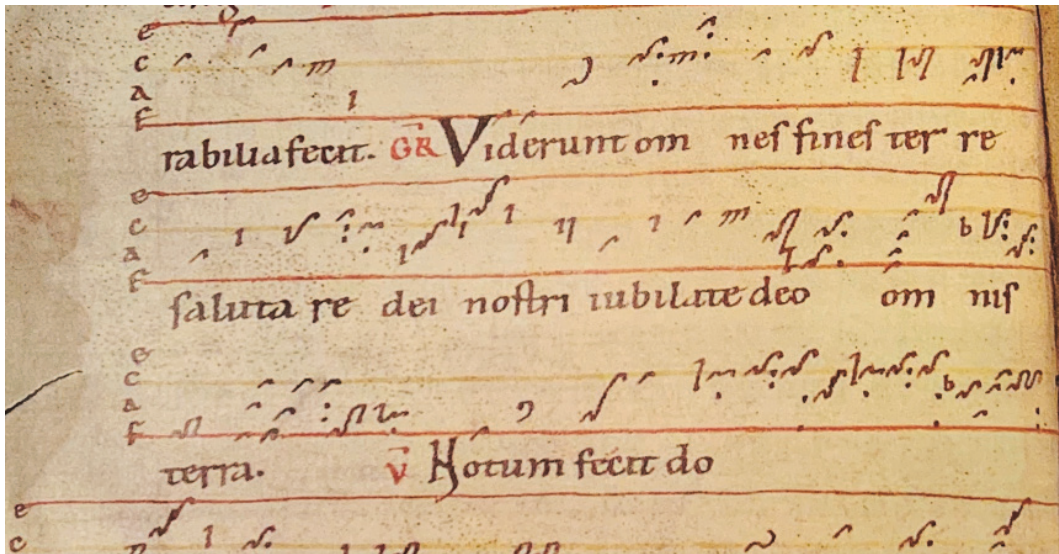 e
c
a
F
rabilia fecit. GR Viderunt om nes fines ter re
e
c
a
F
saluta re dei nostri iubilate deo om nis
e
c
a
F
terra. V Notum fecit do
e
c